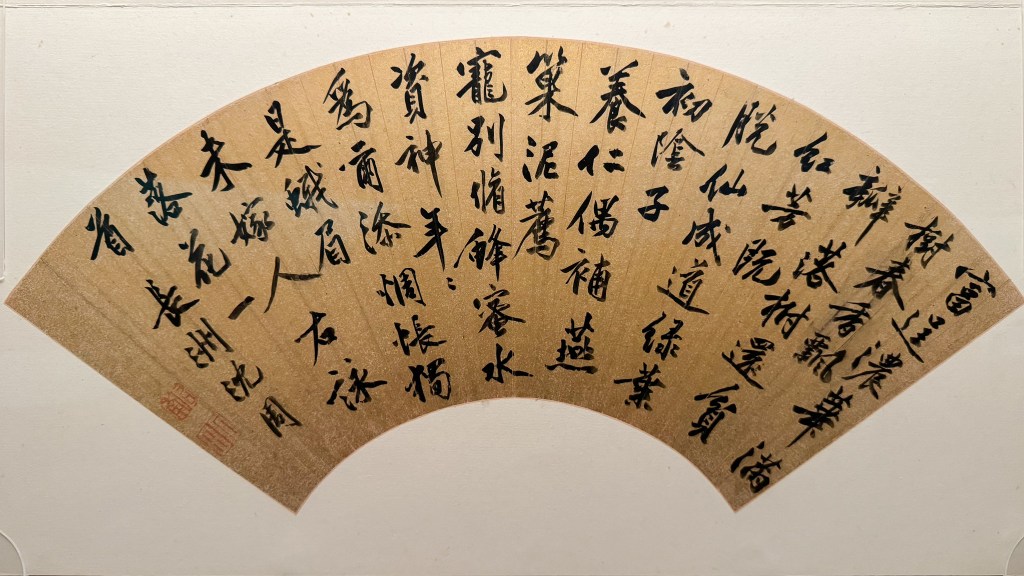 富逞濃華滿
樹春香飄
瓣落樹還貧
紅芳既
脫仙成道綠葉
初陰子
養仁偶補燕
巢泥薦
寵別脩蜂蜜水
資神年〻
爲爾添惆悵獨
是蛾眉
未嫁人右詠
落花一
首長洲沈周